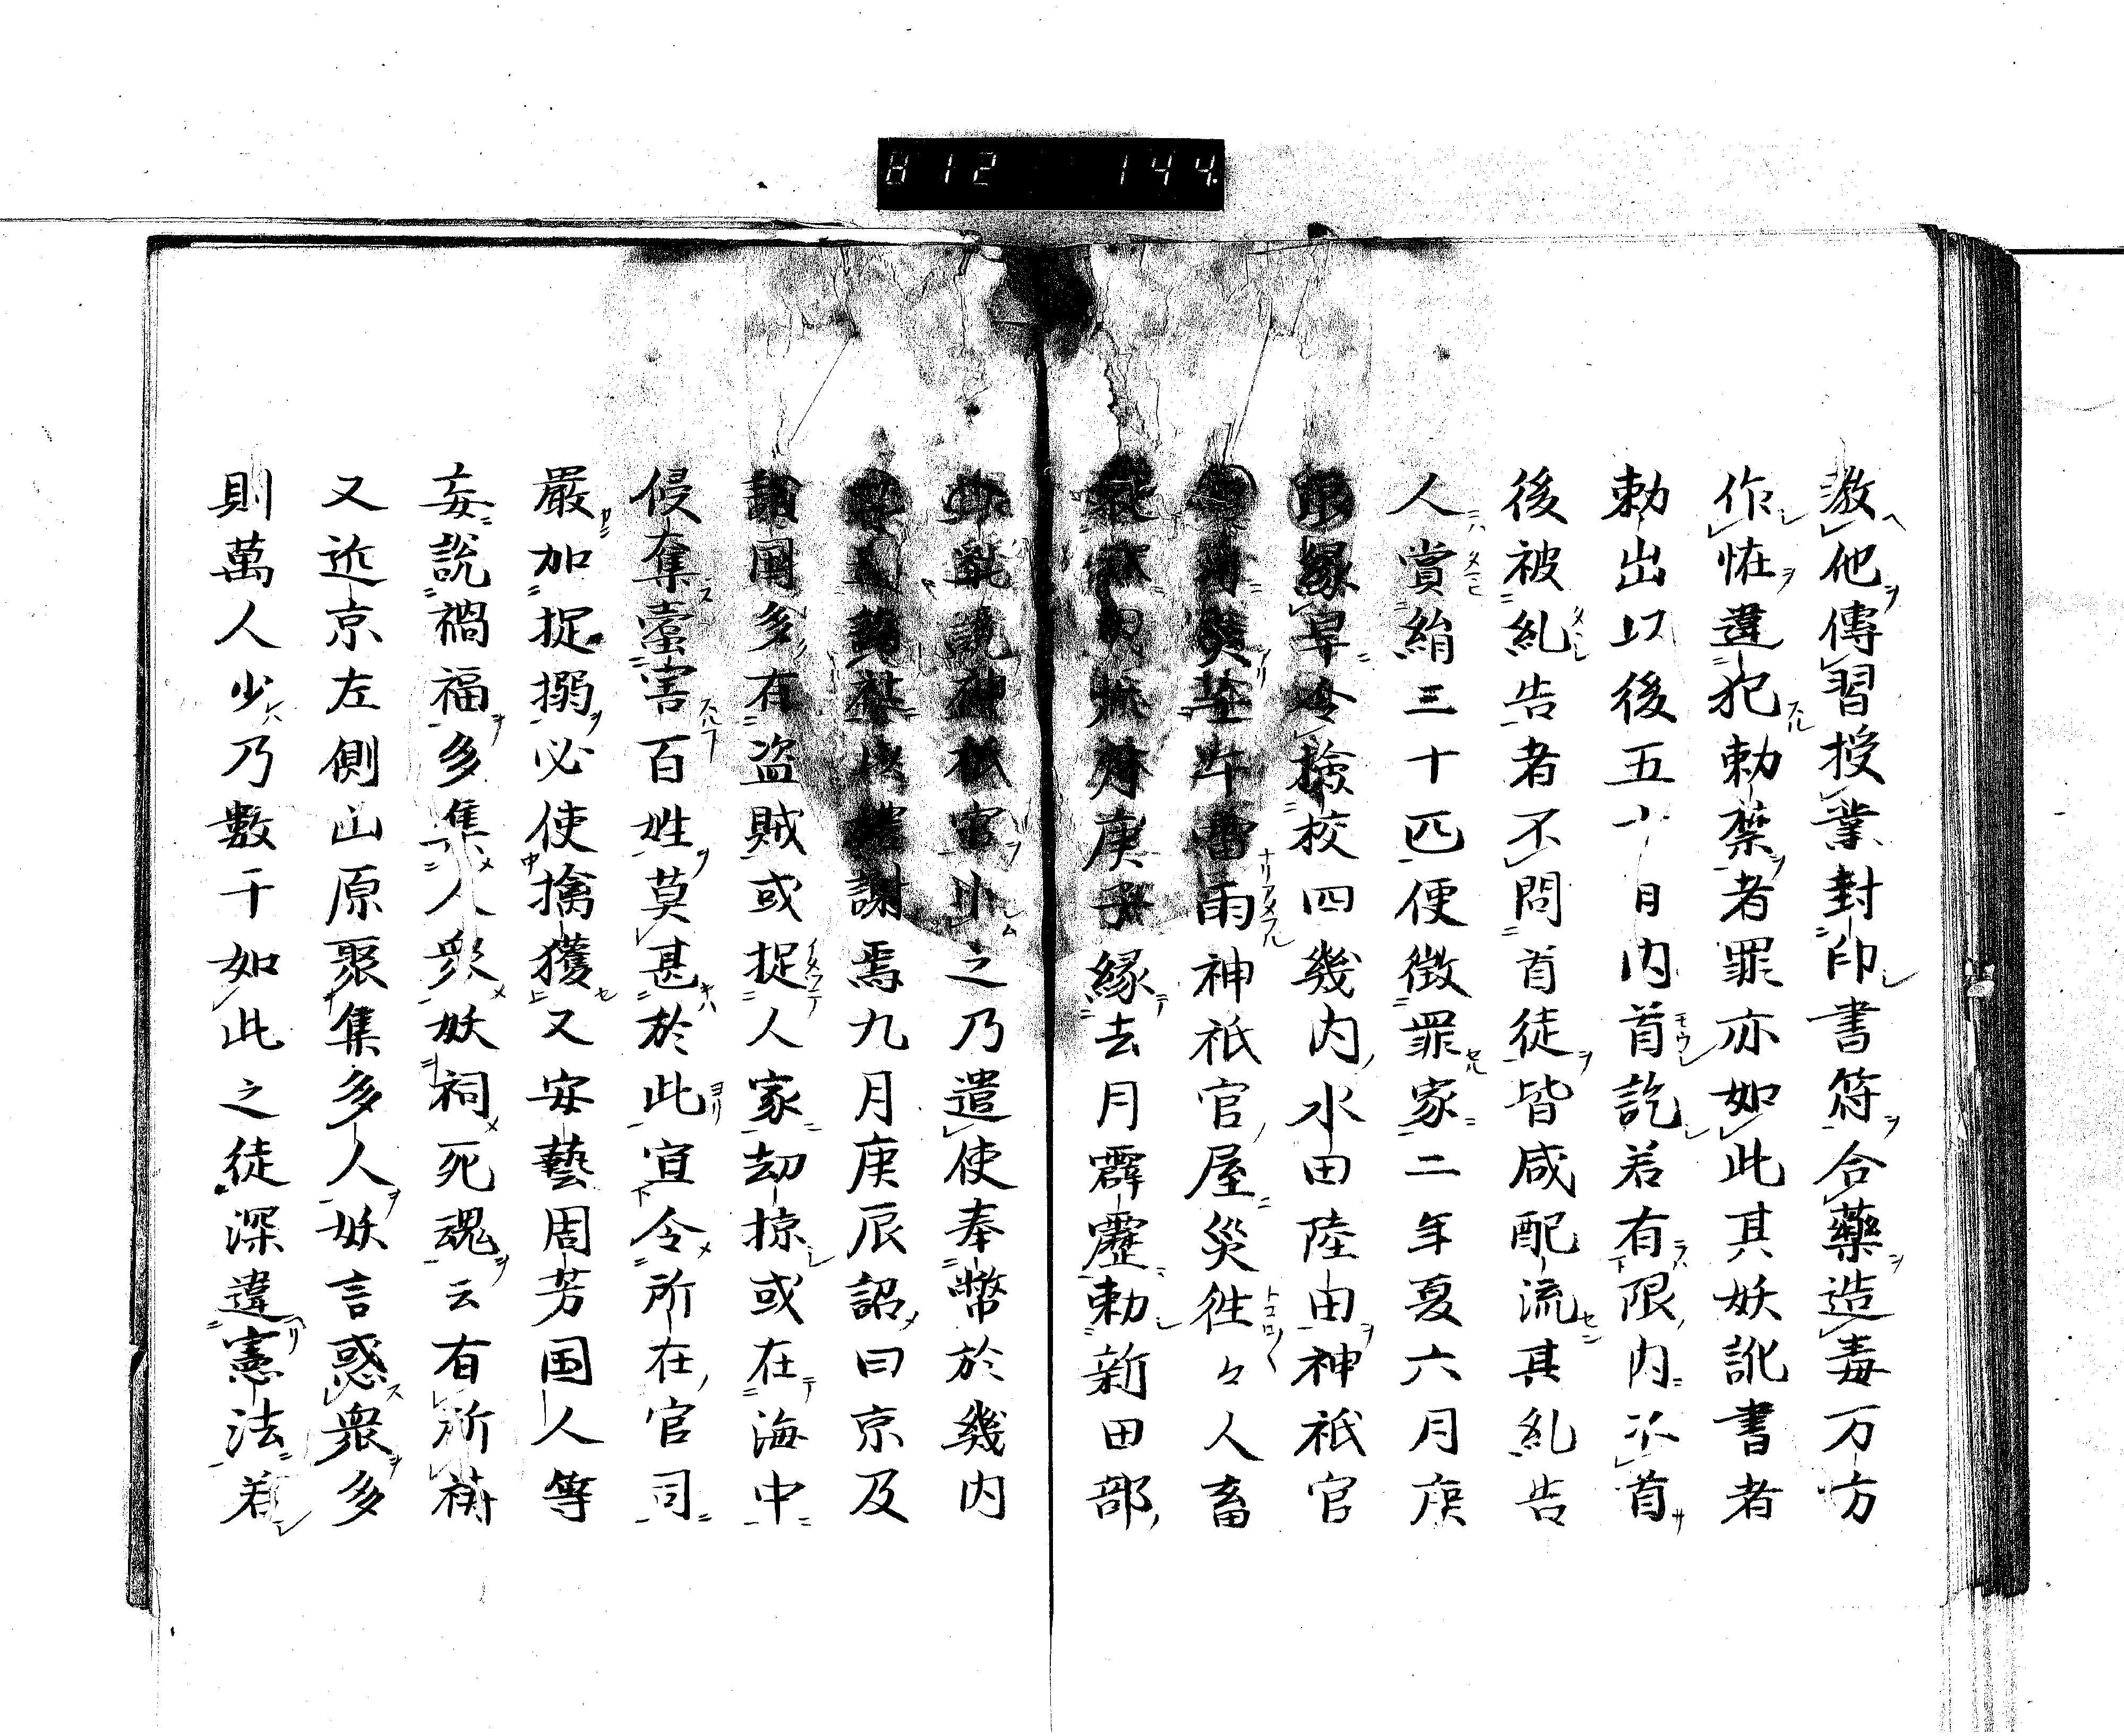 812 144
教他傳習授業封印書符合藥造毒万方
作恠違犯勅禁者罪亦如此其妖訛書者
勅出以後五十日内首訖若有限内不首
後被糺告者不問首徒皆咸配流其糺告
人賞絹三十匹便徴罪家二年夏六月庚
辰縁旱令撿校四幾内水田陸田神祇官
災壬午雷雨神祇官屋災徃々人畜
庚子縁去月霹靂勅新田部
神祇官卜之乃遣使奉幣於幾内
謝焉九月庚辰詔曰京及
諸國多有盗賊或捉人家劫掠或在海中
侵奪蠹害百姓莫甚於此宜令所在官司
嚴加捉搦必使擒獲又安藝周芳国人等
妄說禍福多集人衆妖祠死魂云有所祷
又近京左側山原聚集多人妖言惑衆多
則萬人少乃數千如此之徒深違憲法若